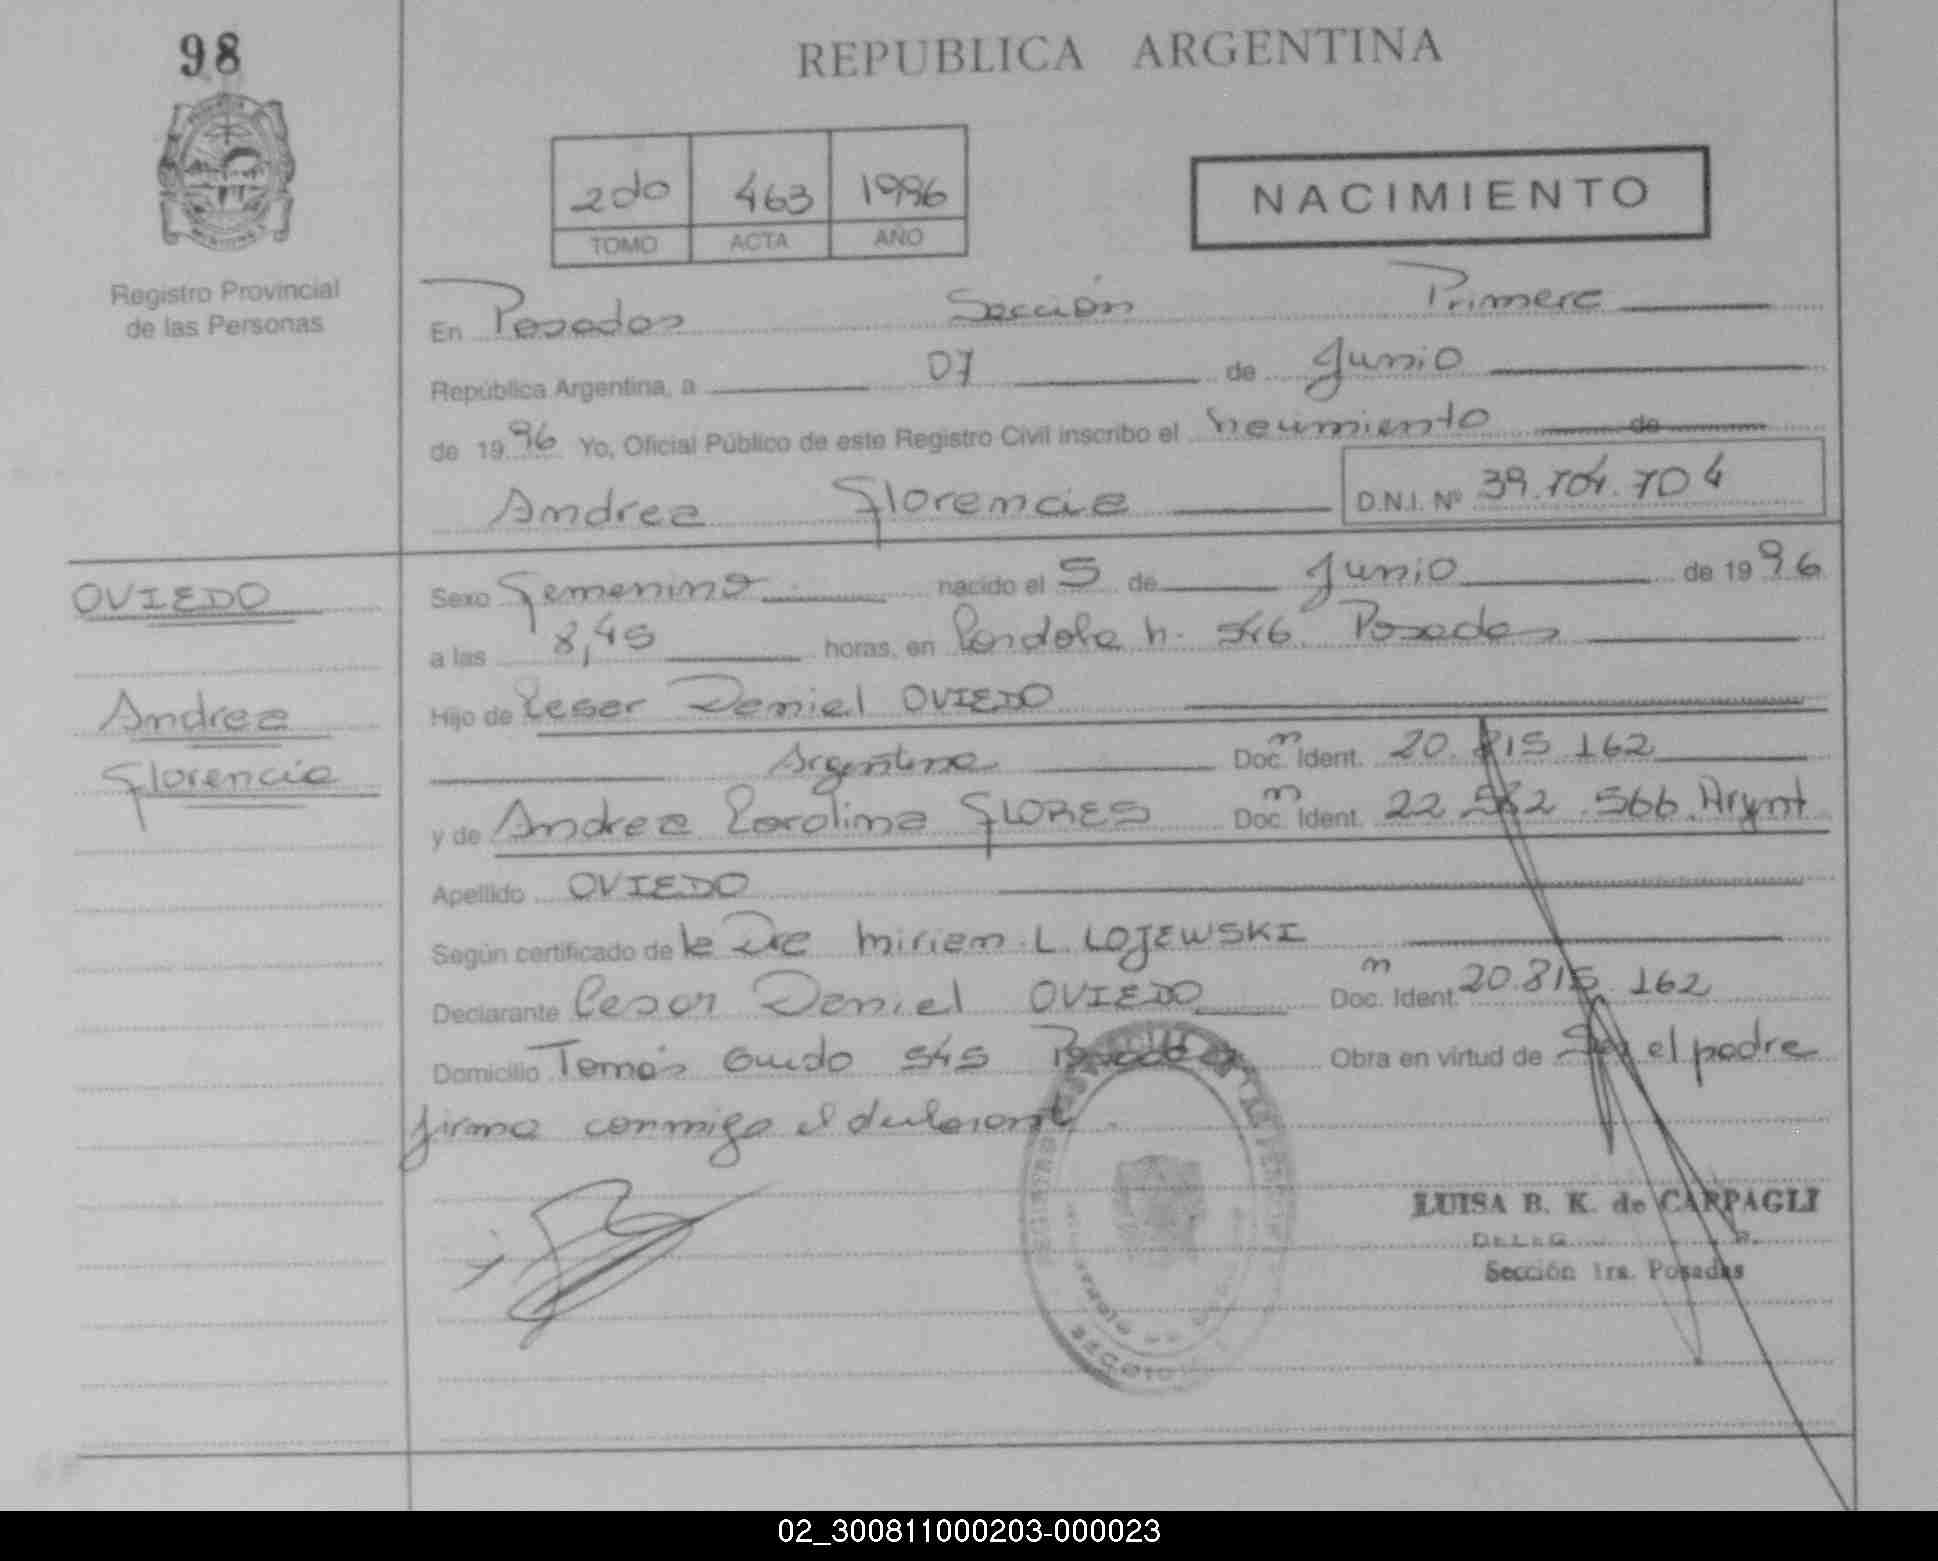 98
REPUBLICA ARGENTINA
2do 463 1996
TOMO ACTA AÑO
NACIMIENTO
Registro Provincial
de las Personas
En Posadas Sección Primera
República Argentina, a 07 de Junio
de 1996 Yo, Oficial Público de este Registro Civil inscribo el de
Andrea Florencia D.N.I. Nº 39.704.704
OVIEDO
Andrea
Florencia
Sexo Femenino nacido el 5 de Junio de 1996
a las 8,45 horas, en h. 546 Posadas
Hijo de Cesar Daniel OVIEDO
Argentina Doc. Ident. 20.815.162
y de Andrea Carolina FLORES Doc. Ident. 22 566
Apellido OVIEDO
Según certificado de la Dra Miriam L LOJEWSKI
Declarante Cesar Daniel OVIEDO Doc. Ident. 20.815.162
Domicilio Tomás Guido 545 Posadas Obra en virtud de Ser el padre
firma conmigo el
LUISA B. K. de CARPAGLI
Sección 1ra. Posadas
02_300811000203-000023